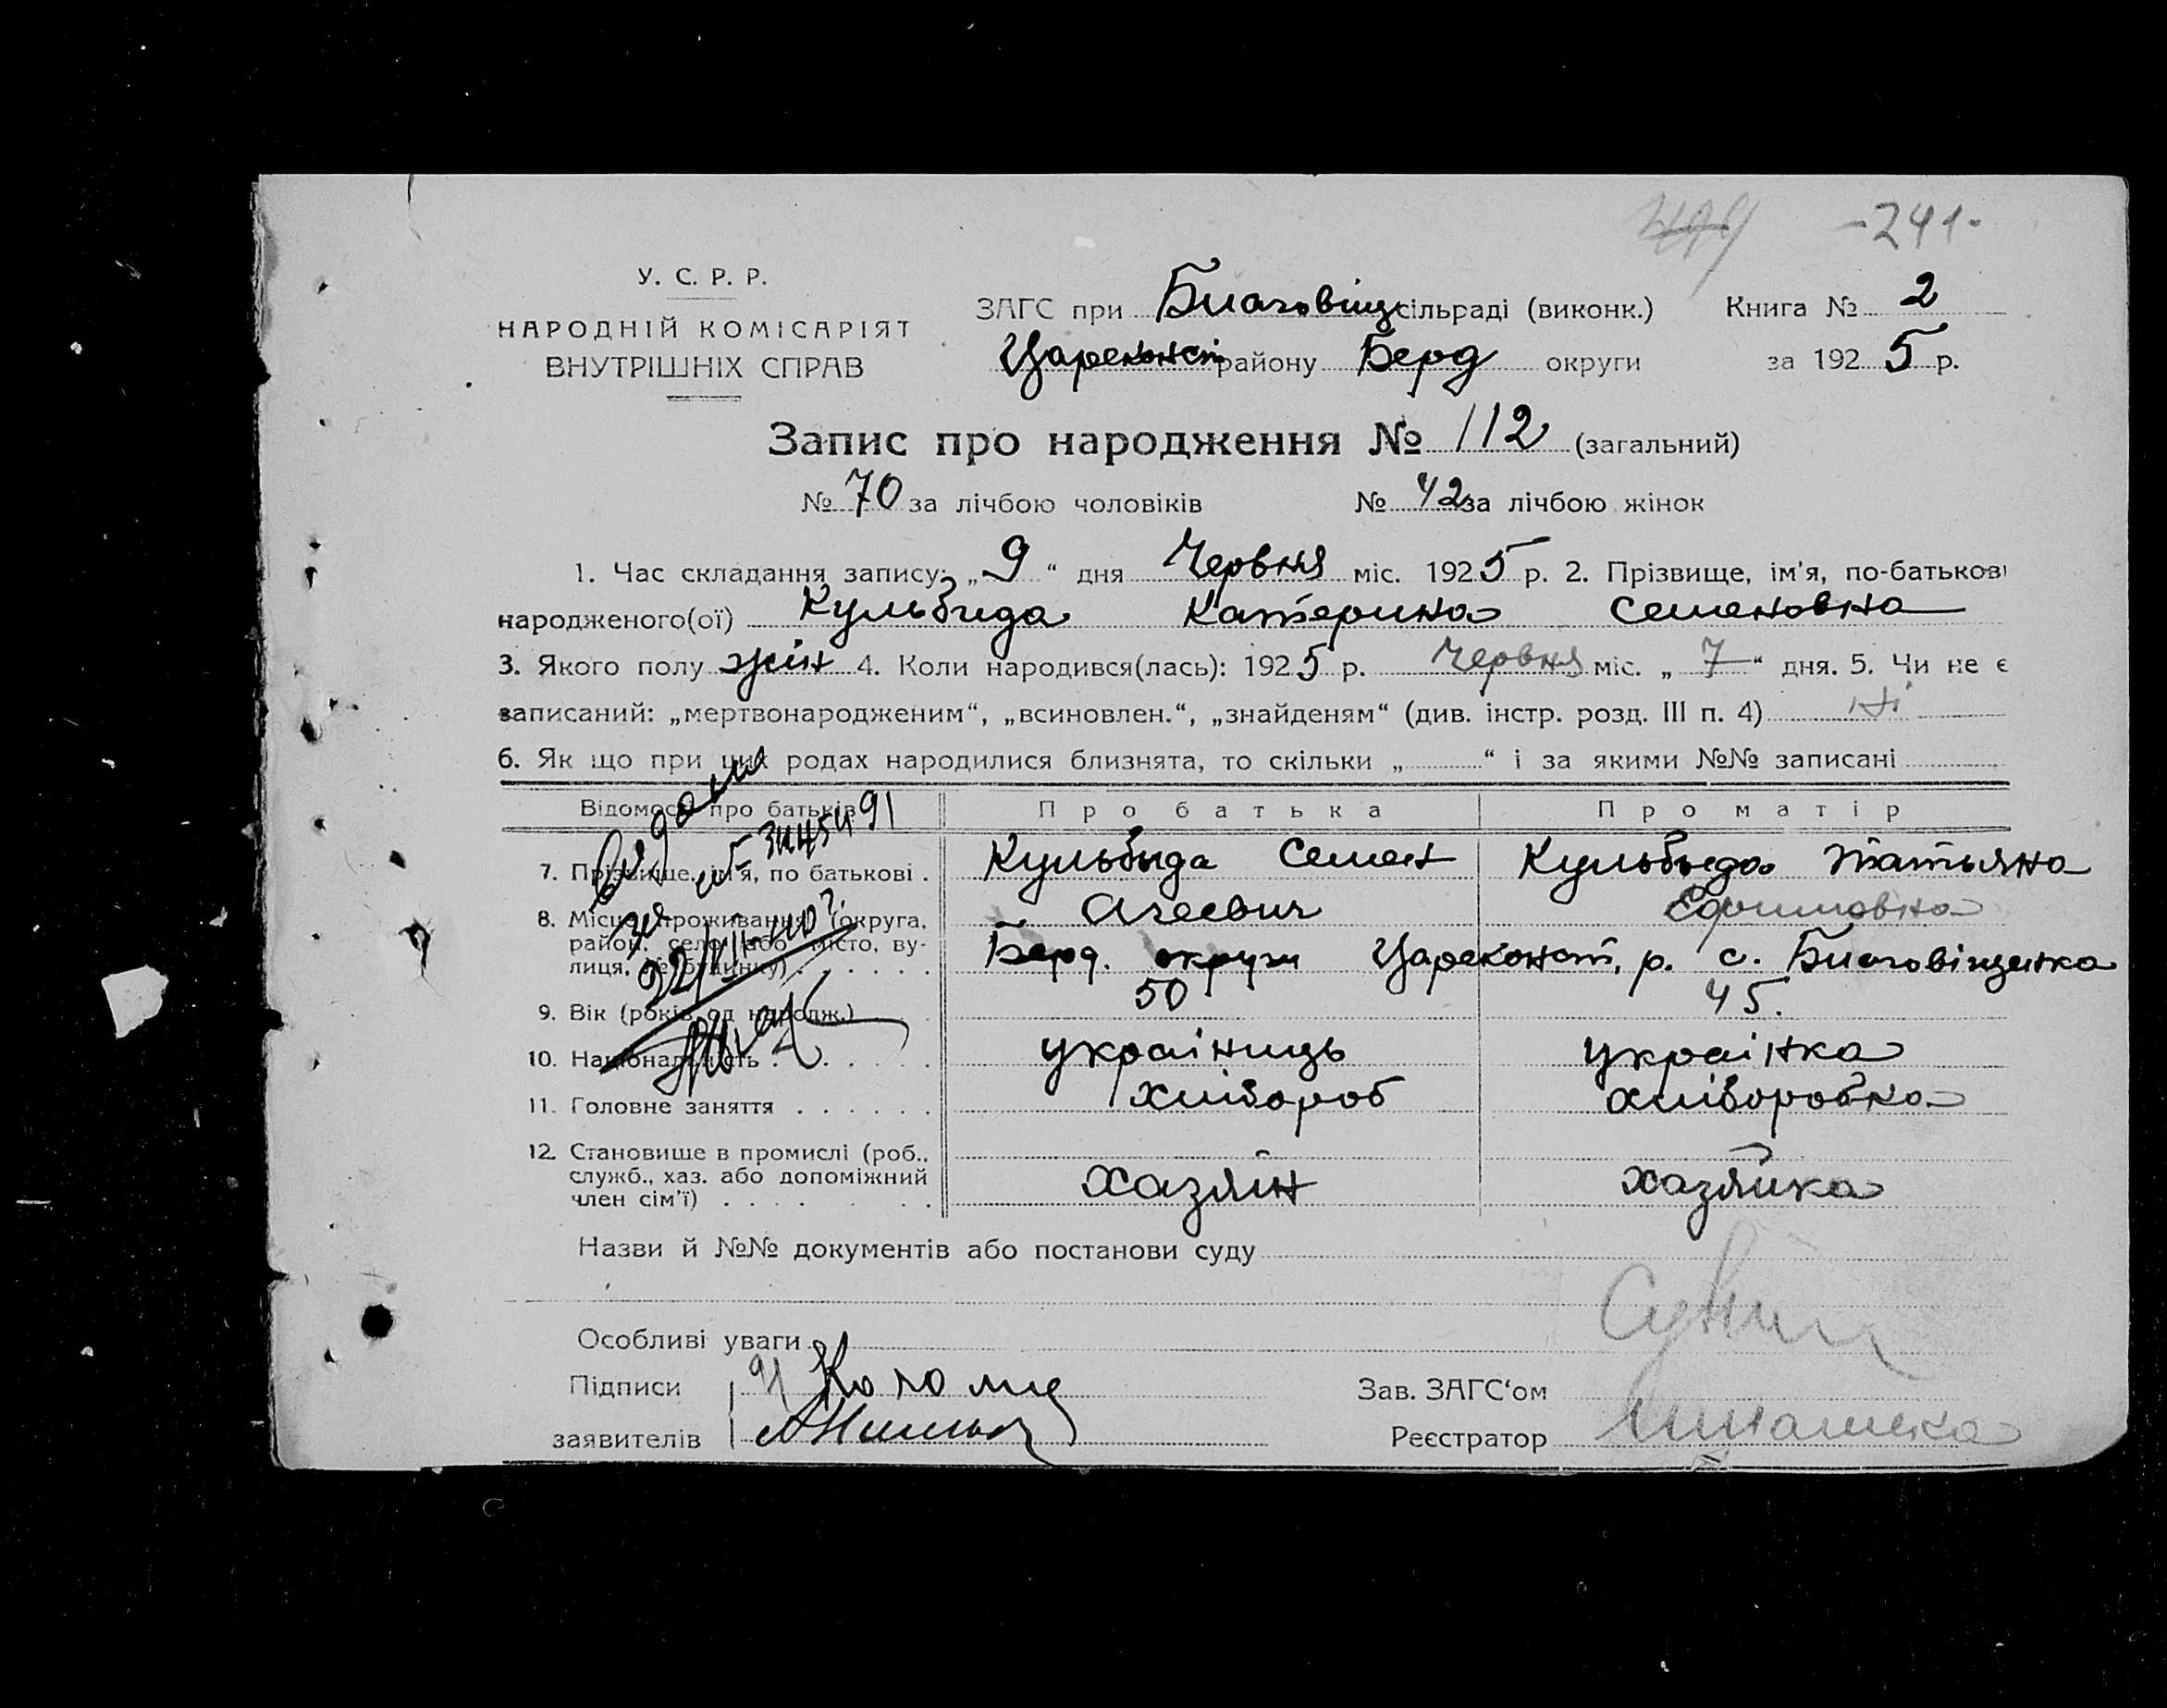 -241-
У. С. Р. Р.
НАРОДНІЙ КОМІСАРІЯТ
ВНУТРІШНІХ СПРАВ
ЗАГС при Благовіщ сільраді (виконк.) Книга № 2
Цареконст району Берд округи за 1925 р.
Запис про народження № 112 (загальний)
№ 70 за лічбою чоловіків № 42 за лічбою жінок
1. Час складання запису: „9“ дня Червня міс. 1925 р. 2. Прізвище, ім'я, по-батькові
народженого(ої) Кульбида Катерина Семеновна
3. Якого полу жін 4. Коли народився(лась): 1925 р. Червня міс. „7“ дня. 5. Чи не є
записаний: „мертвонародженим“, „всиновлен.“, „знайденям“ (див. інстр. розд. III п. 4) ні
6. Як що при цих родах народилися близнята, то скільки „ “ і за якими №№ записані
Відомості про батьків Про батька Про матір
7. Прізвище, ім'я, по батькові . Кульбыда Семен Кульбыда Татьяна
Агеевич Ефимовна
8. Місце проживання (округа, район, село або місто, вулиця, № будинку) . . . . . . Берд. округи Цареконст. р. с. Благовіщенка
9. Вік (років од народж.) . . 50 45.
10. Національність . . . . . . українець українка
11. Головне заняття . . . . . . хлібороб хліборобка
12. Становище в промислі (роб., служб., хаз. або допоміжний член сім'ї) . . . . . . Хазяїн хазяйка
Назви й №№ документів або постанови суду
Особливі уваги
Підписи
заявителів
Зав. ЗАГС'ом
Реєстратор